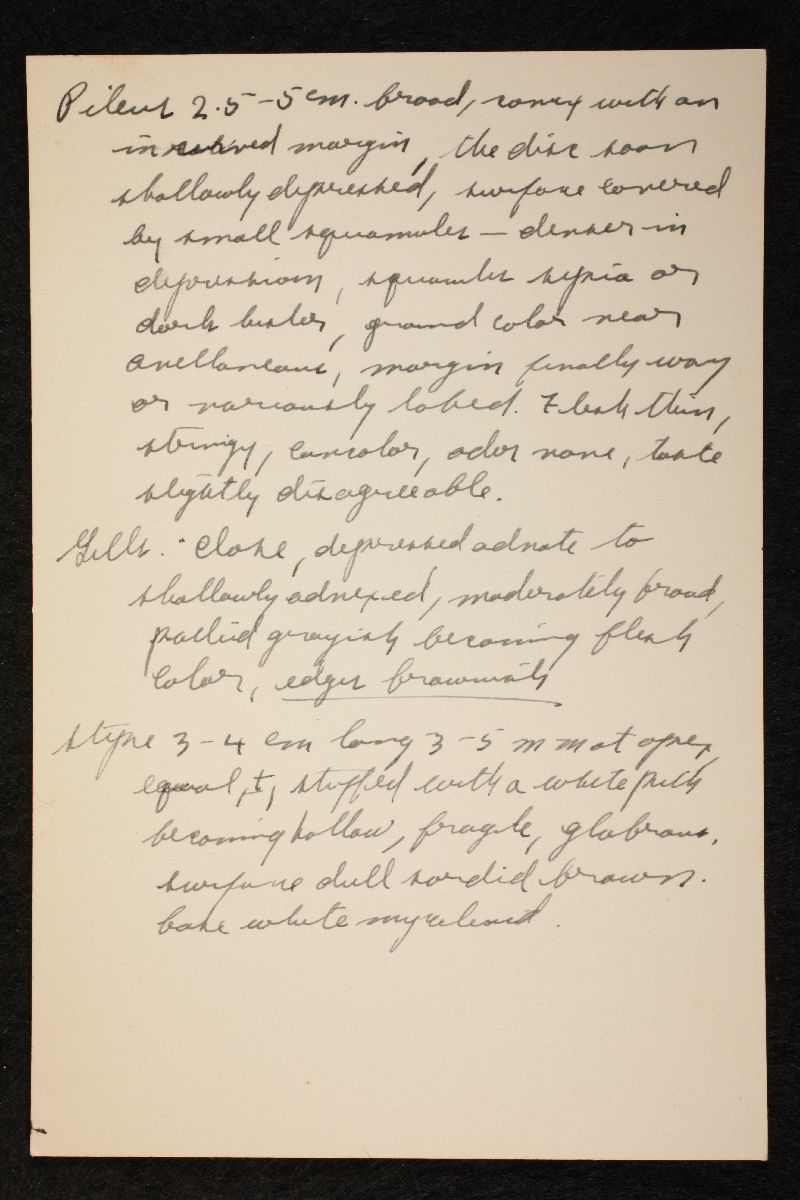 Pileus 2.5-5 cm. broad, convex with an
incurved margin, the disc soon
shallowly depressed, surface covered
by small squamules — denser in
depression, squamules sepia or
dark bister, ground color near
avellaneous, margin finally wavy
or variously lobed. Flesh thin,
stringy, concolor, odor none, taste
slightly disagreeable.
Gills. close, depressed adnate to
shallowly adnexed, moderately broad,
pallid grayish becoming flesh
color, edges brownish
Stipe 3-4 cm long 3-5 mm at apex,
equal, ±, stuffed with a white pith
becoming hollow, fragile, glabrous,
surface dull sordid brown.
base white mycelioid.